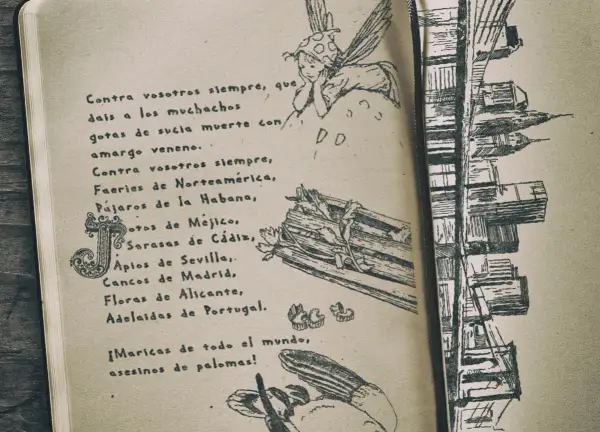 Contra vosotros siempre, que
dais a los muchachos
gotas de sucia muerte con
amargo veneno.
Contra vosotros siempre,
Faeries de Norteamérica,
Pájaros de la Habana,
Jotos de Méjico,
Sarasas de Cádiz,
Ápios de Sevilla,
Cancos de Madrid,
Floras de Alicante,
Adelaidas de Portugal.
¡Maricas de todo el mundo,
asesinos de palomas!